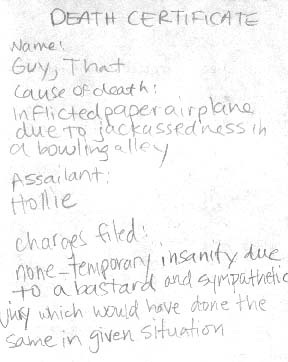 DEATH CERTIFICATE
Name:
Guy, That
Cause of death:
Inflicted paper airplane
due to jackassedness in
a bowling alley
Assailant:
Hollie
Charges filed:
none - temporary insanity due
to a bastard and sympathetic
jury which would have done the
same in given situation